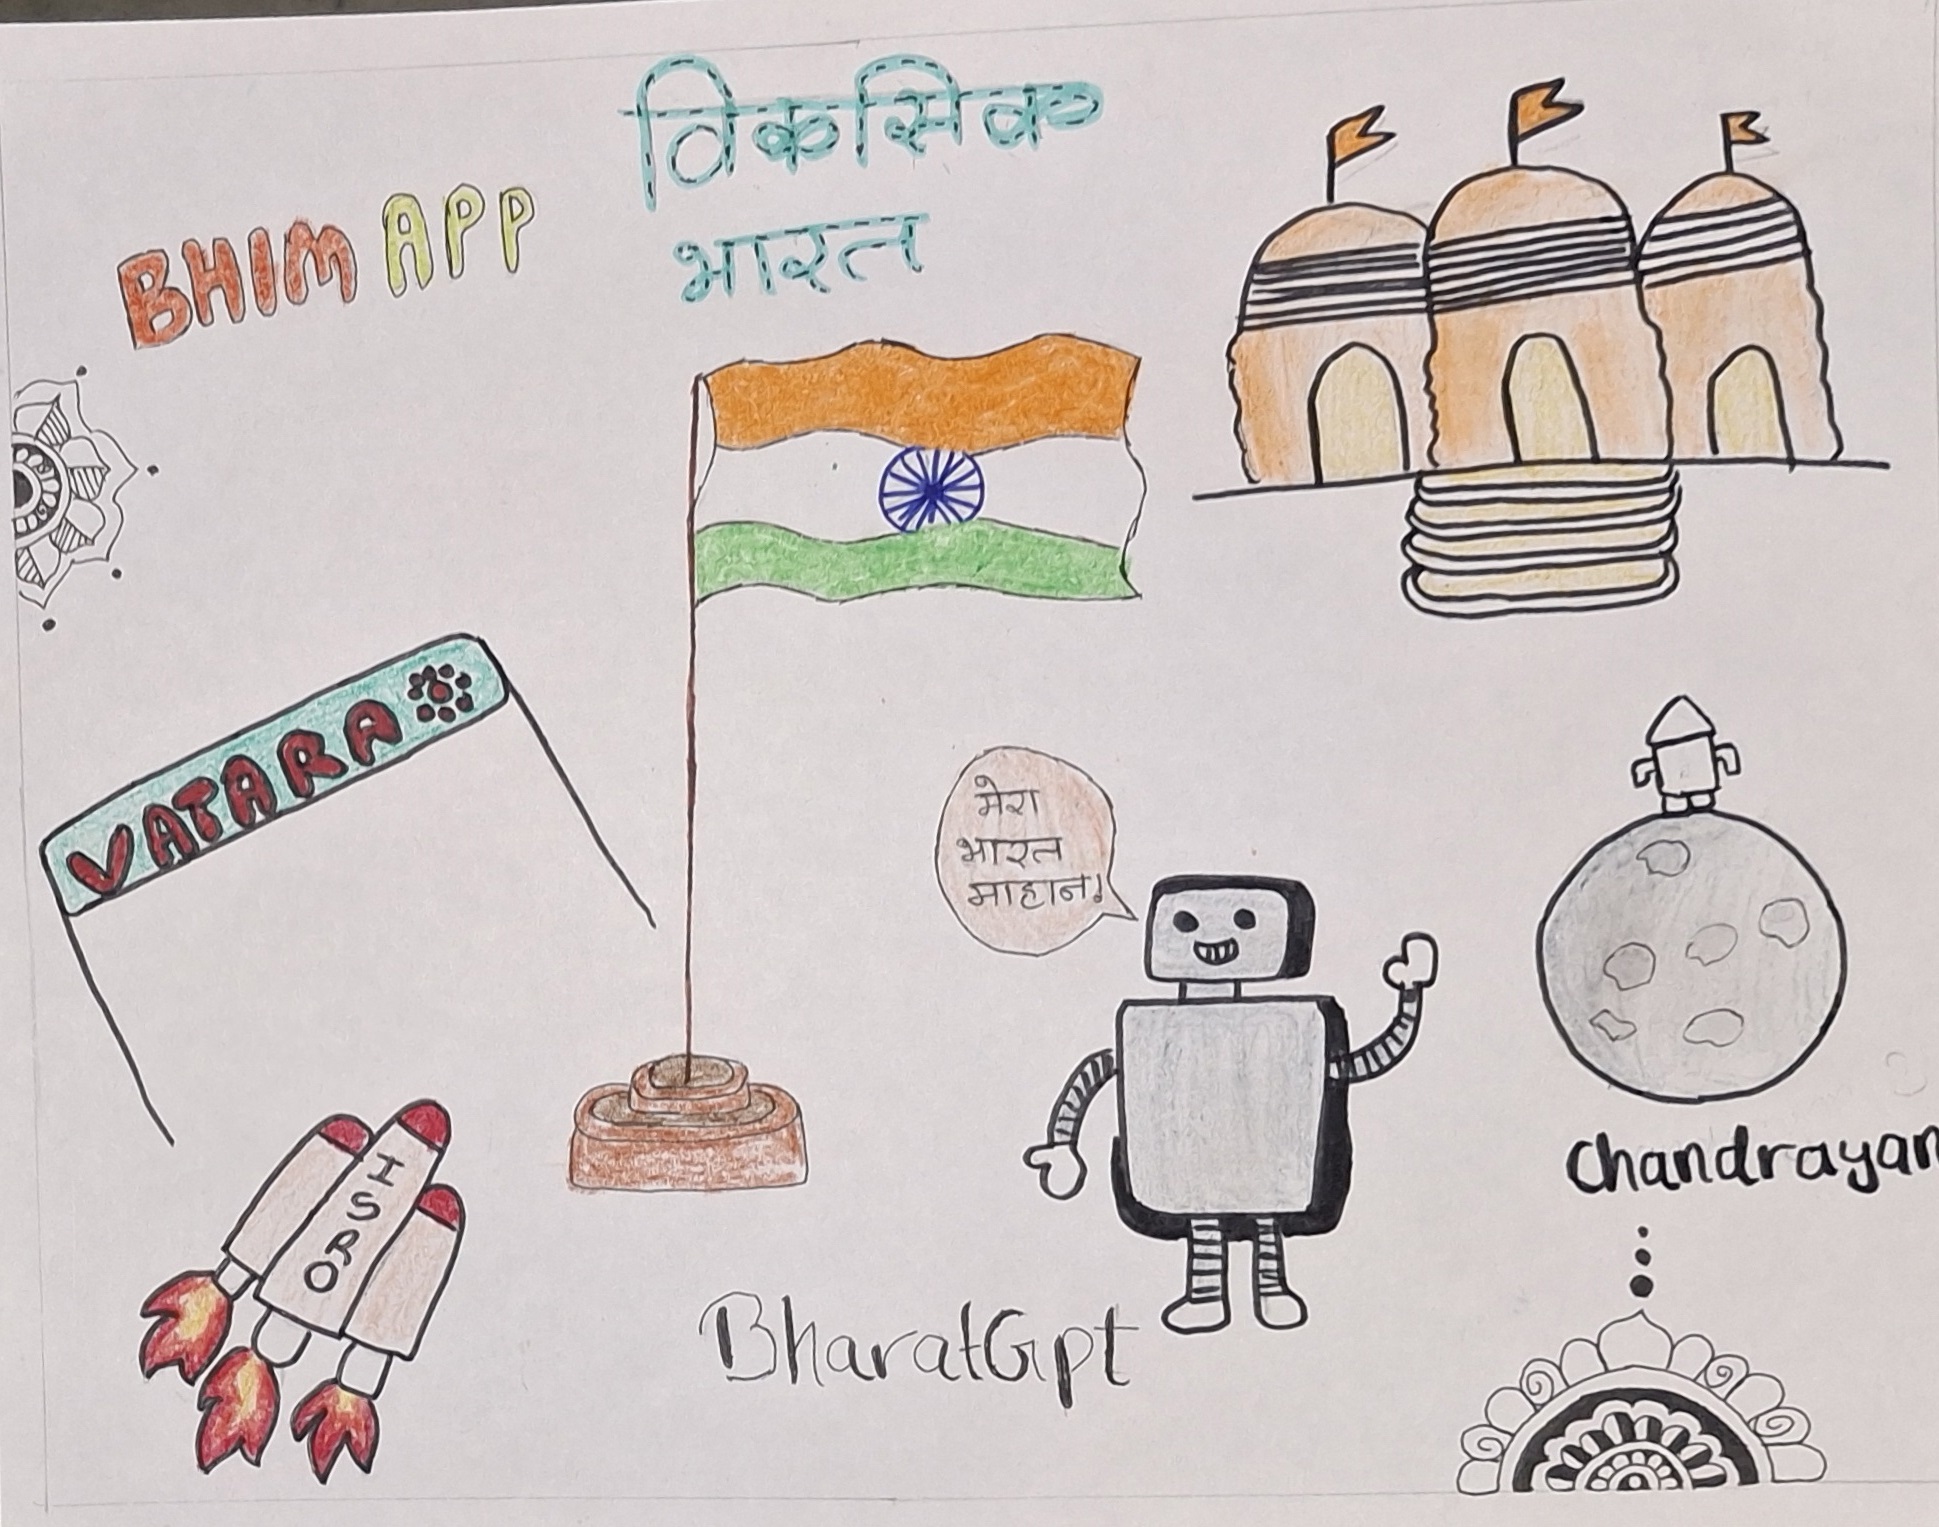 विकसिक
भारत
BHIM APP
VATARA
मेरा
भारत
माहान!
Chandrayan
ISRO
BharatGpt